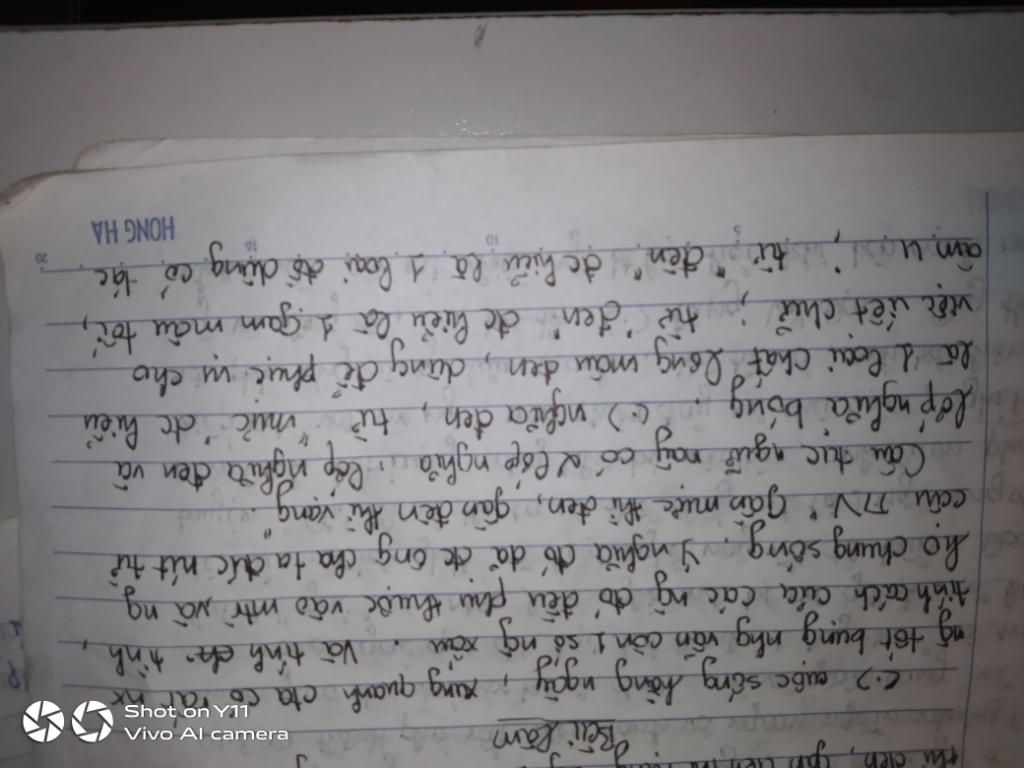 thì đen, gần đèn thì
Bài làm
(.) cuộc sống hằng ngày, xung quanh cta có rất nx
ng tốt bụng nhg vẫn còn 1 số ng xấu. Và tính tình,
tính cách của các ng đó đều phụ thuộc vào mtr và ng
họ chung sống. Ý nghĩa đó đã đc ông cha ta đúc kết từ
câu TN "Gần mực thì đen, gần đèn thì sáng".
Câu tục ngữ này có 2 lớp nghĩa, lớp nghĩa đen và
lớp nghĩa bóng. (.) nghĩa đen, từ "mực" đc hiểu
là 1 loại chất lỏng màu đen, dùng để phục vụ cho
việc viết chữ, từ "đen" đc hiểu là 1 gam màu tối,
âm u, từ "đèn" đc hiểu là 1 loại đồ dùng có tác
5 10 15 20
HONG HA
Shot on Y11
Vivo AI camera